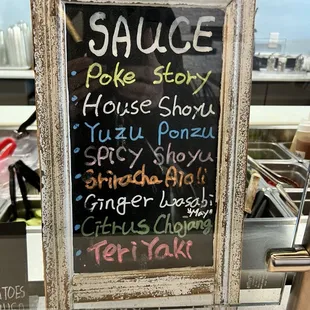 SAUCE
Poke Story
House Shoyu
Yuzu Ponzu
Spicy Shoyu
Sriracha Aioli
Ginger Wasabi
"Mayo"
Citrus Chojang
TeriYaki